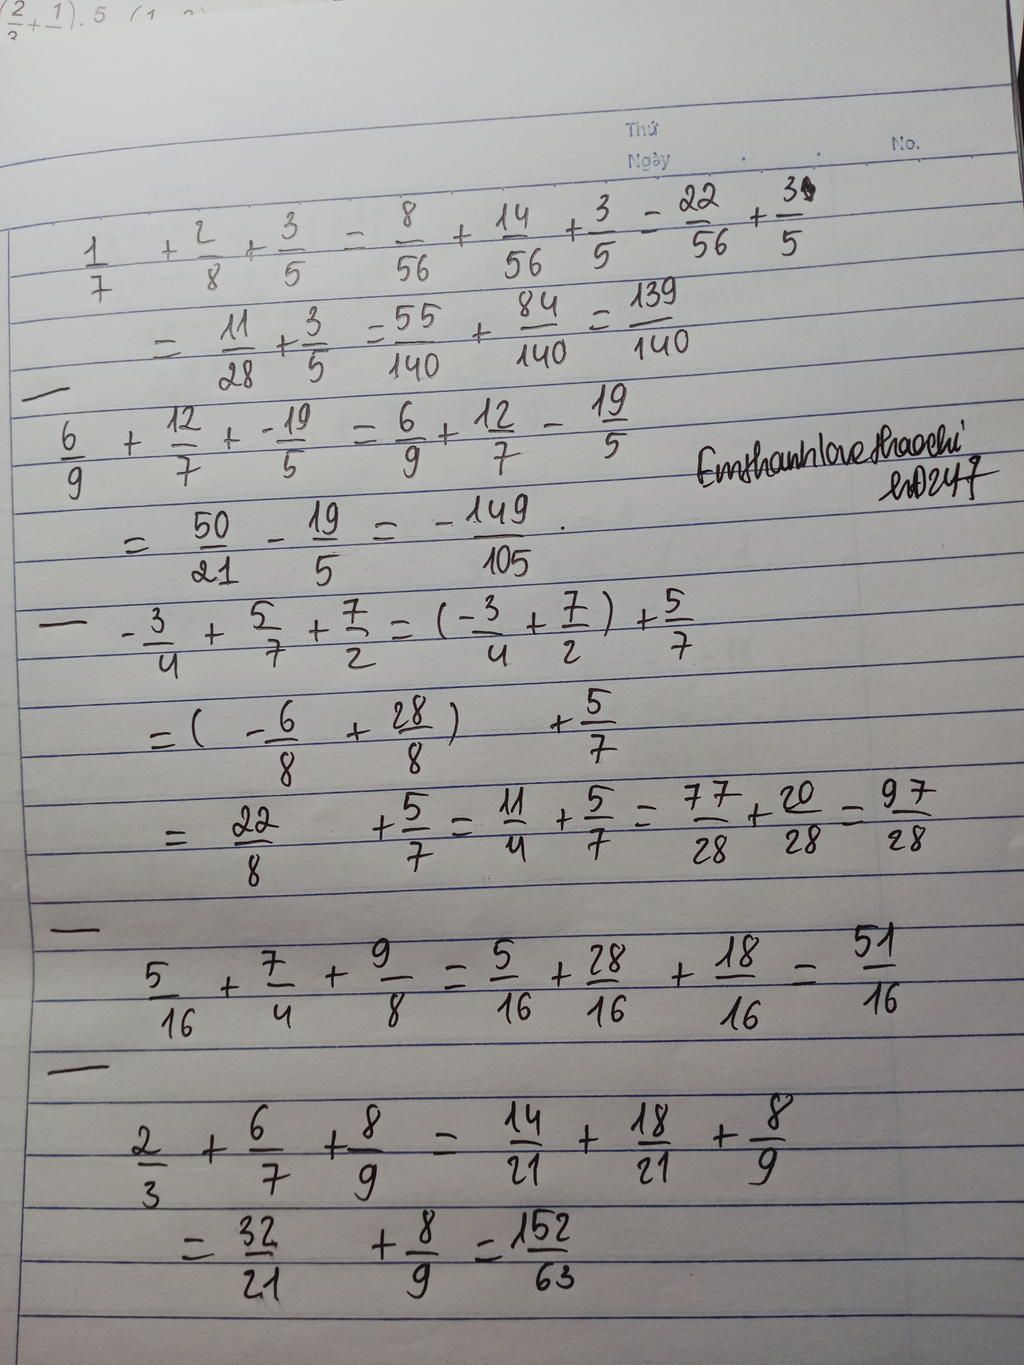 Thứ
Ngày
No.
1/7 + 2/8 + 3/5 = 8/56 + 14/56 + 3/5 = 22/56 + 3/5
= 11/28 + 3/5 = 55/140 + 84/140 = 139/140
6/9 + 12/7 + -19/5 = 6/9 + 12/7 - 19/5
= 50/21 - 19/5 = -149/105.
-3/4 + 5/7 + 7/2 = (-3/4 + 7/2) + 5/7
= (-6/8 + 28/8) + 5/7
= 22/8 + 5/7 = 11/4 + 5/7 = 77/28 + 20/28 = 97/28
5/16 + 7/4 + 9/8 = 5/16 + 28/16 + 18/16 = 51/16
2/3 + 6/7 + 8/9 = 14/21 + 18/21 + 8/9
= 32/21 + 8/9 = 152/63